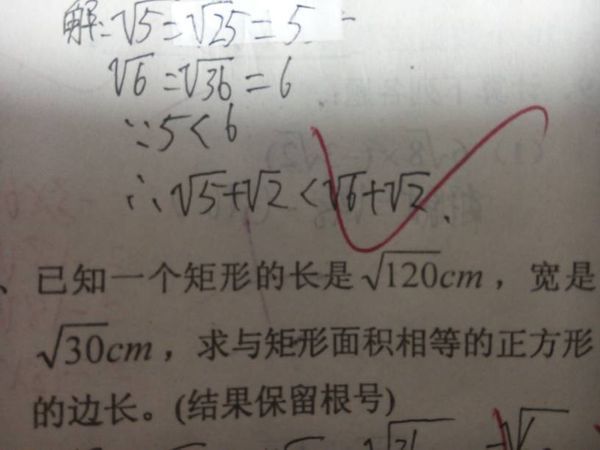 解:√5=√25=5
√6=√36=6
∵5<6
∴√5+√2<√6+√2.
、已知一个矩形的长是√120cm，宽是
√30cm，求与矩形面积相等的正方形
的边长。(结果保留根号)